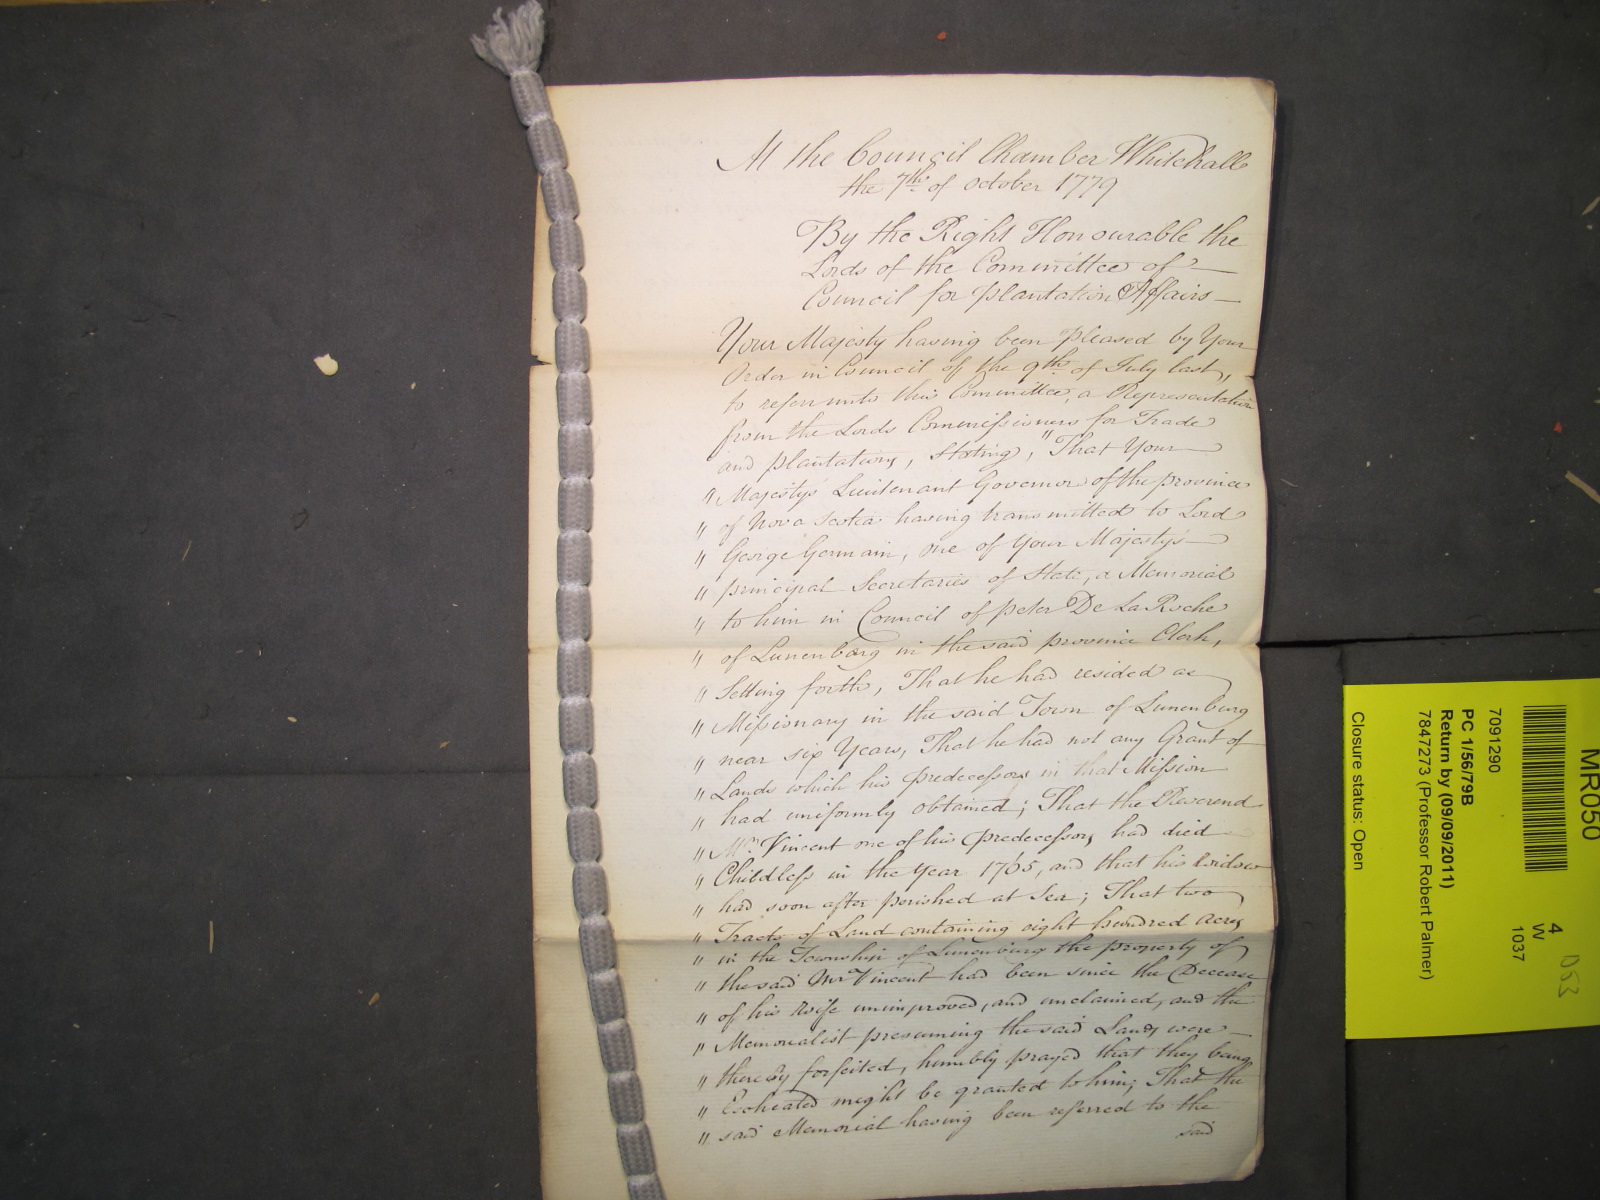 At the Council Chamber Whitehall
the 7th of October 1779
By the Right Honourable the
Lords of the Committee of
Council for plantation Affairs
Your Majesty having been pleased by Your
Order in Council of the 9th of July last,
to referr unto this Committee, a Representation
from the Lords Commissioners for Trade
and plantations, stating, "That Your
" Majestys Lieutenant Governor of the province
" of Nova Scotia having transmitted to Lord
" George Germain, one of Your Majestys
" principal Secretaries of State, a Memorial
" to him in Council of peter De La Roche
" of Lunenburg in the said province Clerk,
" Setting forth, That he had resided as
" Missionary in the said Town of Lunenburg
" near six Years, That he had not any Grant of
" Lands which his predecessors in that Mission
" had uniformly obtained; That the Reverend
" Mr. Vincent one of his predecessors, had died
" Childless in the Year 1765, and that his Widow
" had soon after perished at Sea; That two
" Tracts of Land containing eight hundred acres,
" in the Township of Lunenburg the property of
" the said Mr Vincent had been since the Decease
" of his Wife unimproved, and unclaimed, and the
" Memorialist presuming the said Lands were
" thereby forfeited, humbly prayed that they being
" Escheated might be granted to him; That the
" said Memorial having been referred to the
said
MR050
4
W
1037
053
7091290
PC 1/56/79B
Return by (09/09/2011)
7847273 (Professor Robert Palmer)
Closure status: Open